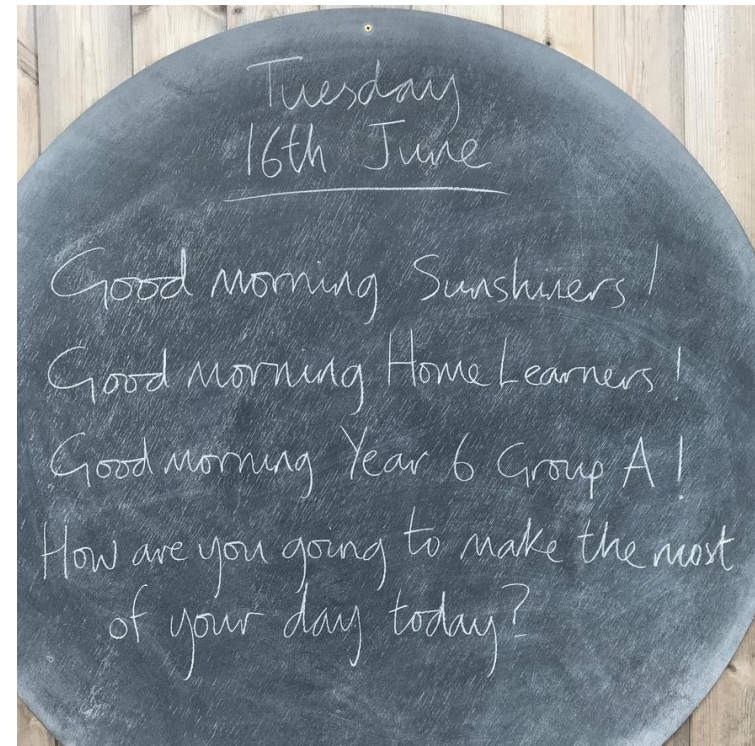 Tuesday
16th June
Good morning Sunshiners!
Good morning Home Learners!
Good morning Year 6 Group A!
How are you going to make the most
of your day today?